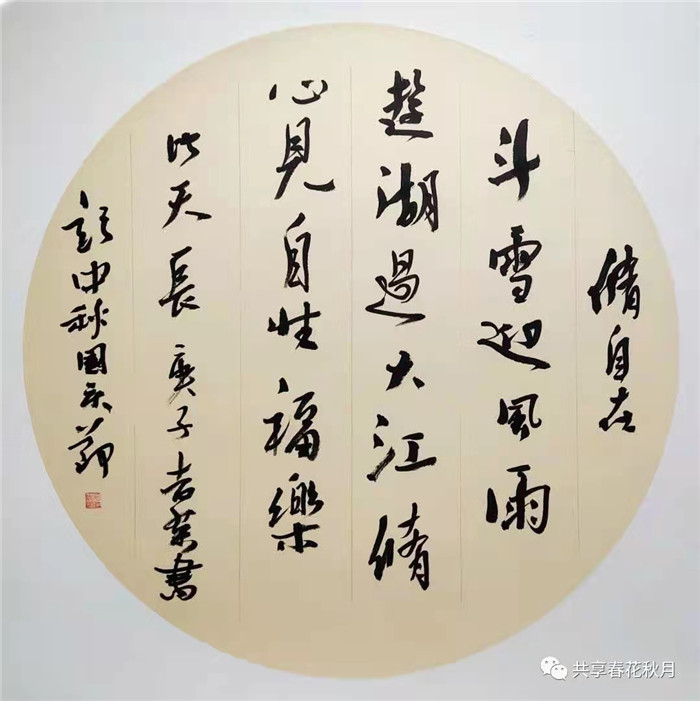 脩自在
斗雪迎風雨
湖過大江脩
心見自性福樂
比天長 庚子吉英書
於中秋國慶節
共享春花秋月